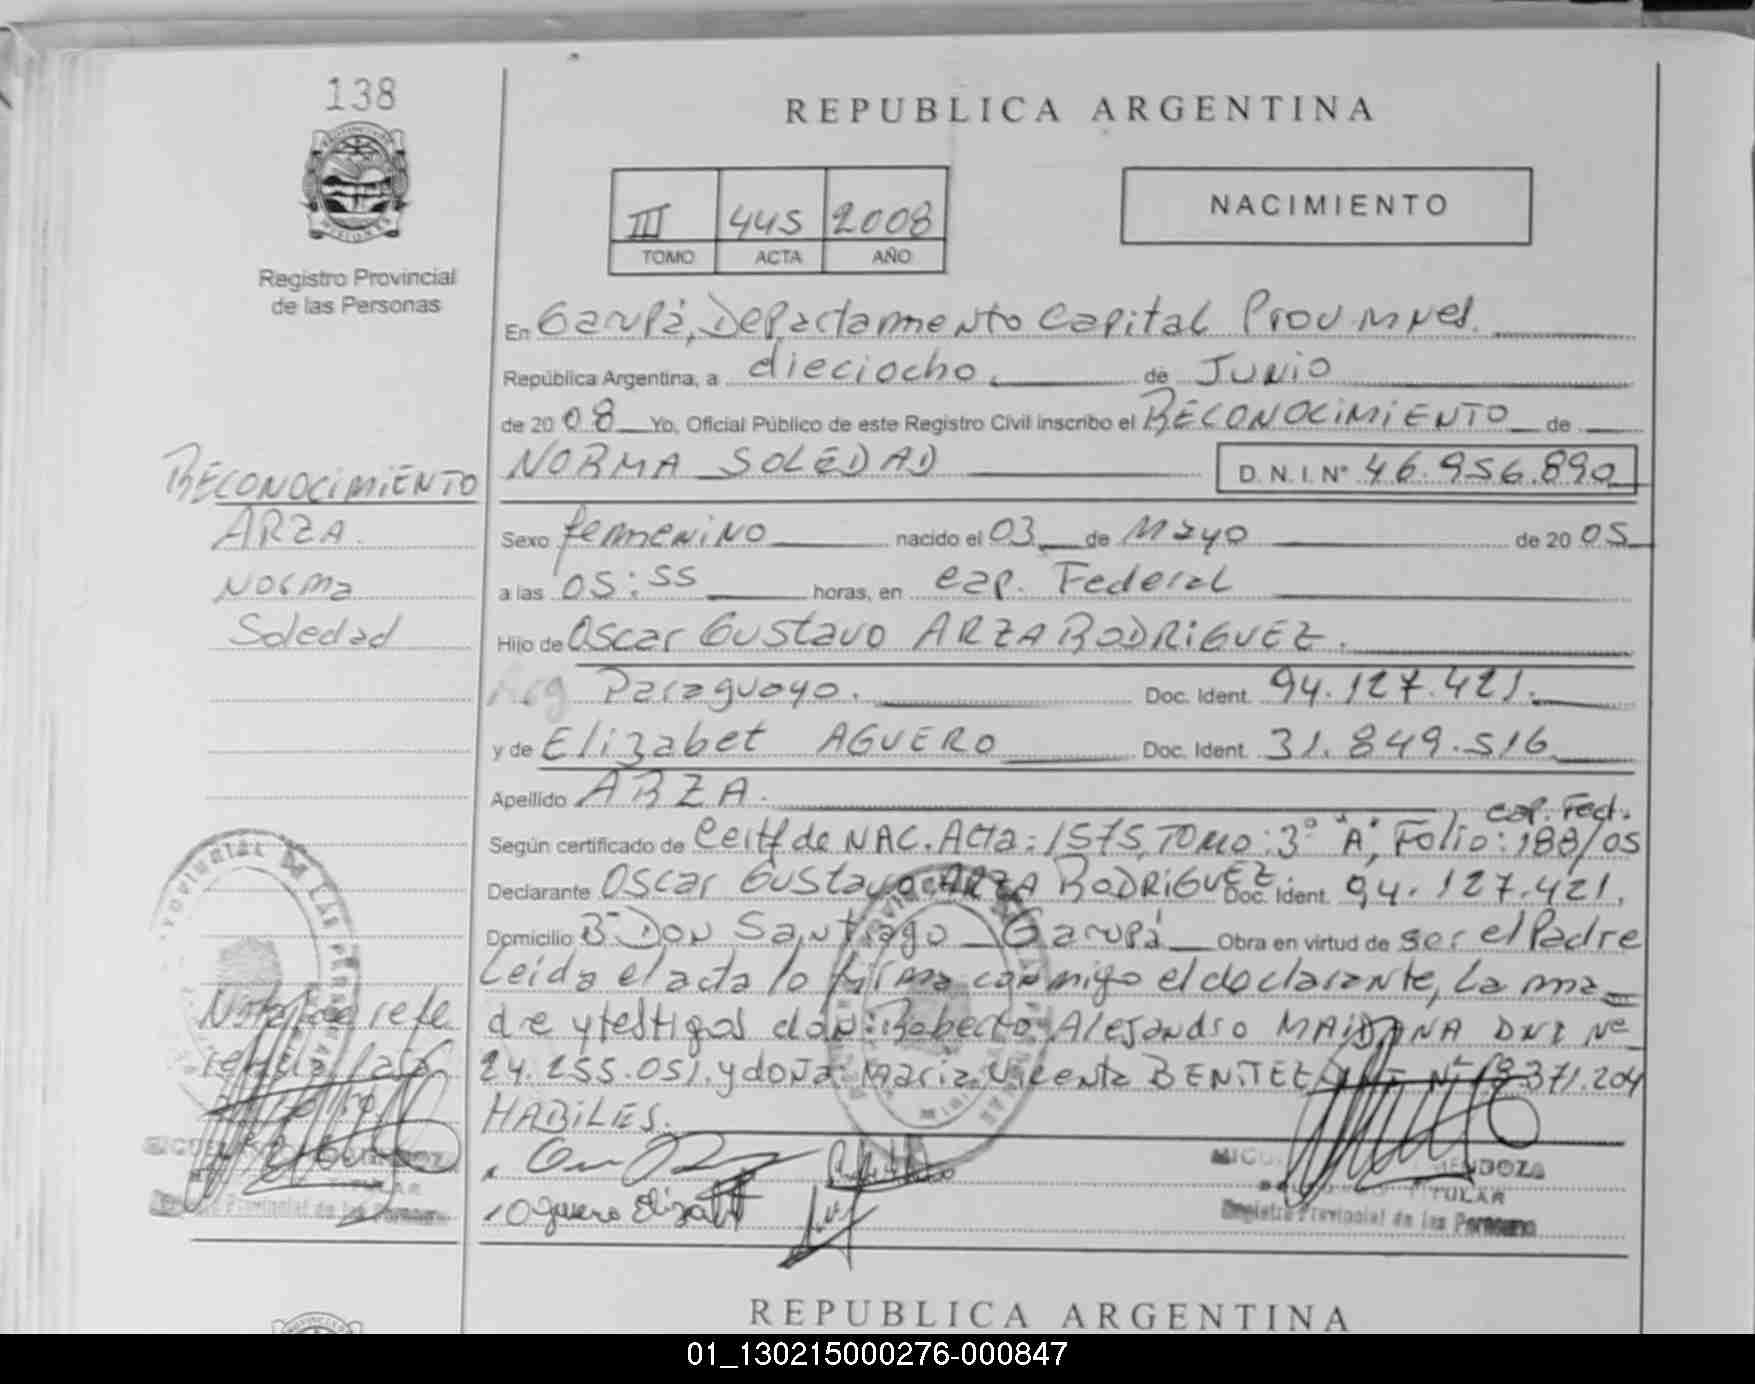 138
REPUBLICA ARGENTINA
III 445 2008
TOMO ACTA AÑO
NACIMIENTO
Registro Provincial
de las Personas
En Garupá, Departamento Capital Prov. Mnes.
República Argentina, a dieciocho de Junio
de 2008 Yo, Oficial Público de este Registro Civil inscribo el RECONOCIMIENTO de
NORMA SOLEDAD D. N. I. Nº 46.956.890
RECONOCIMIENTO
ARZA
Norma
Soledad
Sexo femenino nacido el 03 de Mayo de 2005
a las 05:55 horas, en Cap. Federal
Hijo de Oscar Gustavo ARZA RODRIGUEZ.
Arg Paraguayo. Doc. Ident. 94.127.421.
y de Elizabet AGUERO Doc. Ident. 31.849.516
Apellido ARZA.
Cap. Fed.
Según certificado de Certf de NAC. Acta: 1575, Tomo: 3º "A", Folio: 188/05
Declarante Oscar Gustavo ARZA RODRIGUEZ Doc. Ident. 94.127.421.
Domicilio Bº Don Santiago Garupá Obra en virtud de ser el Padre
Leída el acta lo firma conmigo el declarante, la ma=
dre y testigos don: Roberto Alejandro MAIDANA DNI Nº
24.255.051. y doña: Maria Vicenta BENITEZ Nº 18.371.204
HABILES.
Nota: se refe
Aguero Elizabet
MENDOZA
TITULAR
Registro Provincial de las Personas
REPUBLICA ARGENTINA
01_130215000276-000847